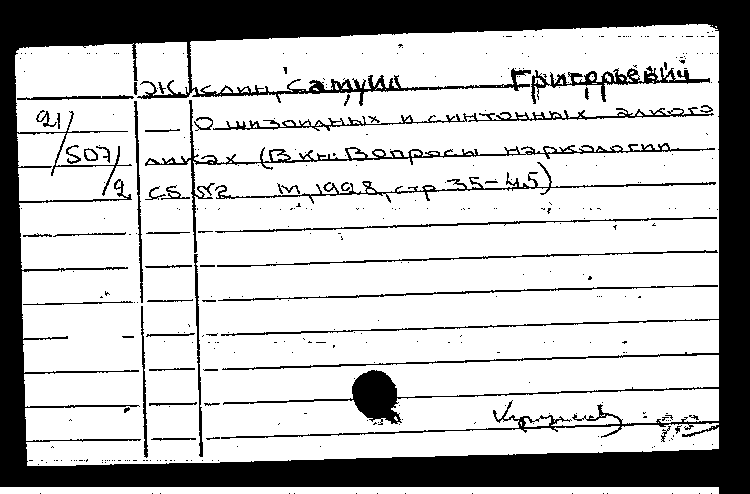 Жислин, Самуил Григорьевич
21/ О шизоидных и синтонных алкого
507/ ликах (В кн: Вопросы наркологии
/2 Сб №2 М, 1928, стр 35-45)